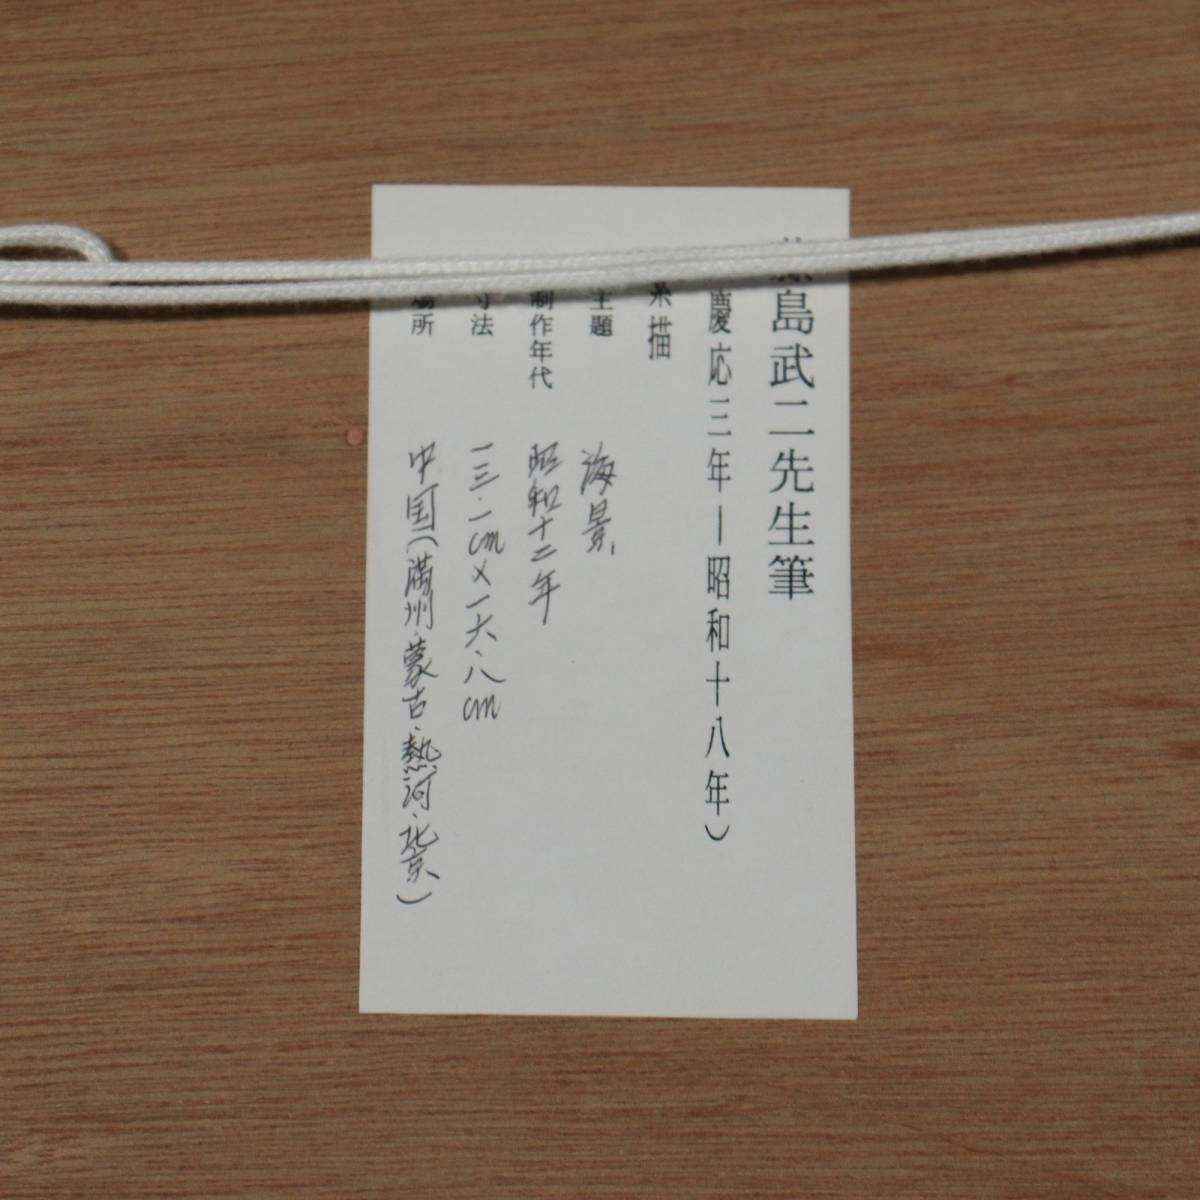 島武二先生筆
慶応三年ー昭和十八年)
素描
主題 海景
制作年代 昭和十二年
寸法 一三.一cm×一六.八cm
場所 中国(満州・蒙古・熱河・北京)